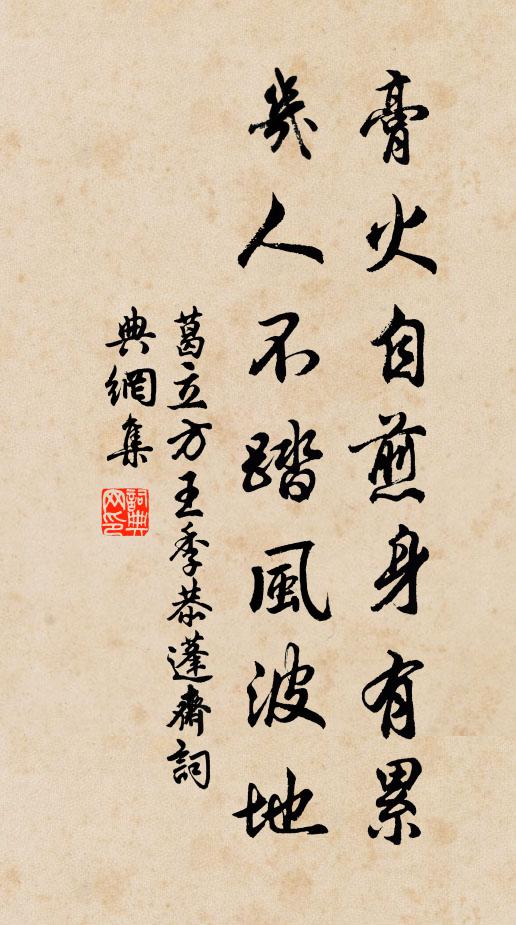 膏火自煎身有累
幾人不踏風波地
葛立方王季恭蓬齋詞
典網集
詞典網印